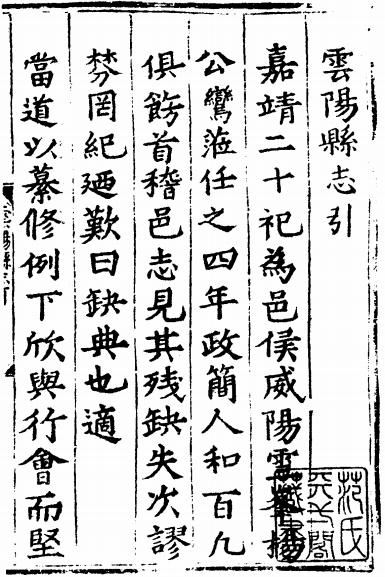 雲陽縣志引
嘉靖二十祀為邑侯咸陽雲峯楊
公鸞蒞任之四年政簡人和百凢
俱餝首稽邑志見其殘缺失次謬
棼罔紀廼歎曰缺典也適
當道以纂修例下欣與行會而堅
范氏天一閣藏書